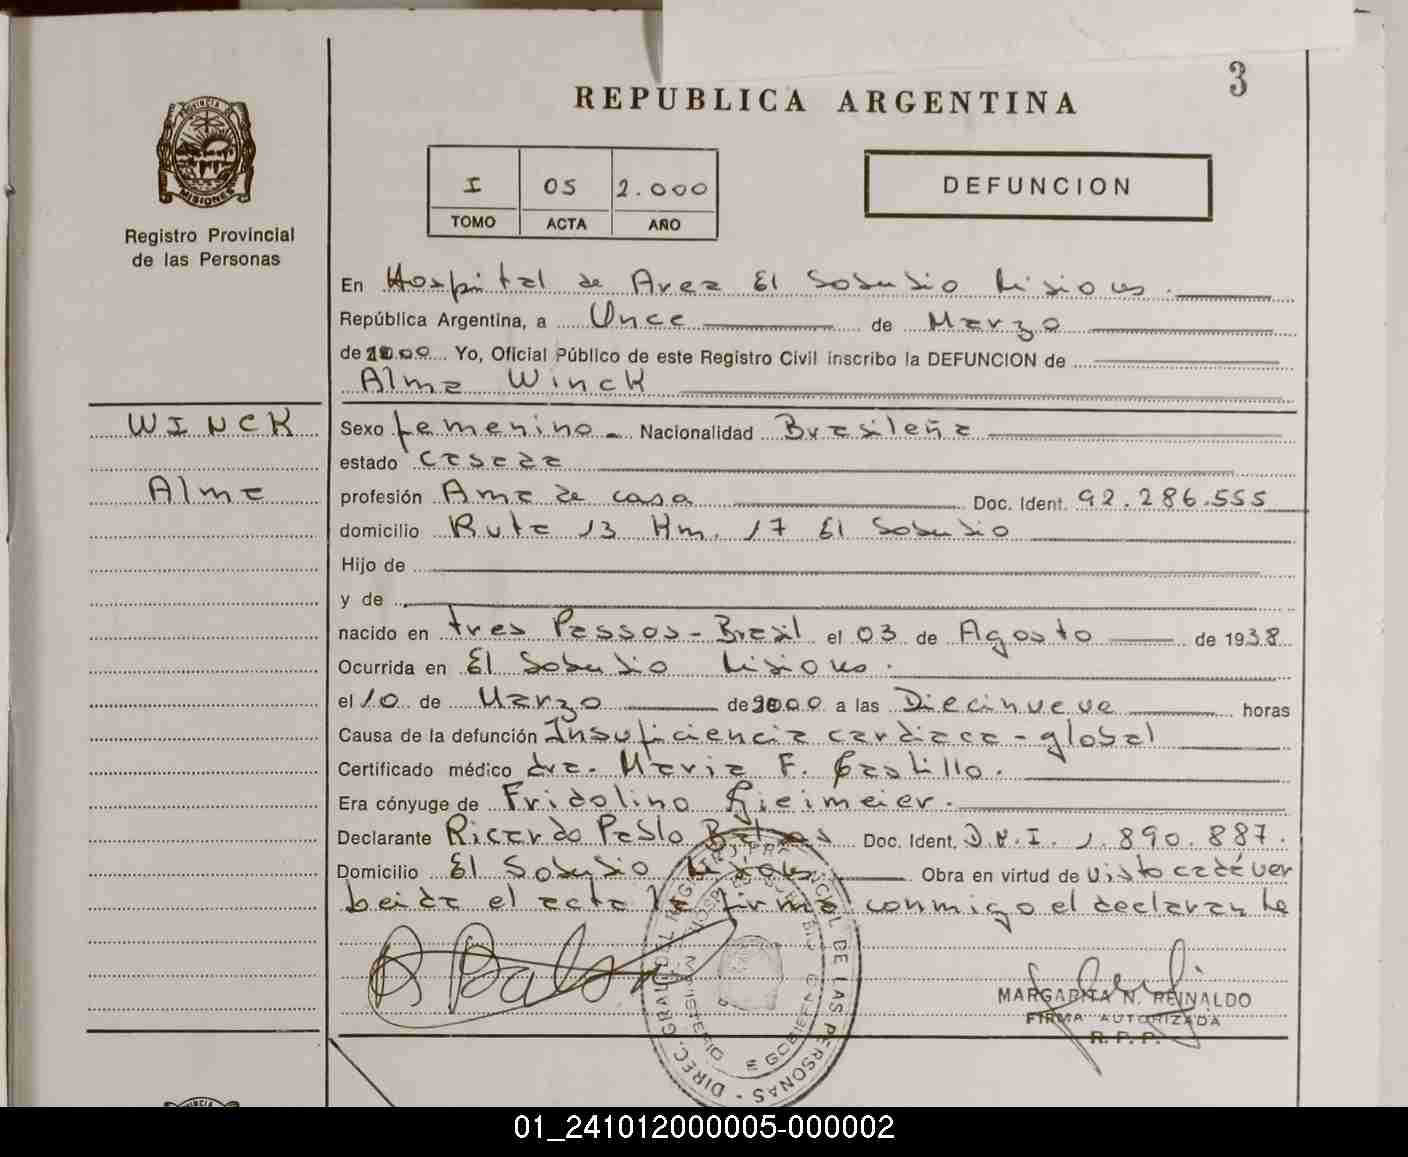 3
REPUBLICA ARGENTINA
PROVINCIA DE
MISIONES
Registro Provincial
de las Personas
I 05 2.000
TOMO ACTA AÑO
DEFUNCION
En Hospital de Area El Soberbio Misiones.
República Argentina, a Once de Marzo
de 2000 Yo, Oficial Público de este Registro Civil inscribo la DEFUNCION de
Alma Winck
WINCK
Alma
Sexo femenino Nacionalidad Brasileña
estado casada
profesión Ama de casa Doc. Ident. 92.286.555
domicilio Ruta 13 Km. 17 El Soberbio
Hijo de
y de
nacido en tres Passos - Brasil el 03 de Agosto de 1938
Ocurrida en El Soberbio Misiones.
el 10 de Marzo de 2000 a las Diecinueve horas
Causa de la defunción Insuficiencia cardiaca - global
Certificado médico dra. Maria F. Castillo.
Era cónyuge de Fridolino
Declarante Ricardo Pablo Doc. Ident. D.N.I. 1.890.887.
Domicilio El Soberbio Misiones Obra en virtud de visto cadáver
leida el acta la firma conmigo el declarante
MARGARITA N. REINALDO
FIRMA AUTORIZADA
R. P. P.
DIREC. GRAL. DEL REGISTRO PROVINCIAL DE LAS PERSONAS
MINISTERIO DE GOBIERNO
01_241012000005-000002